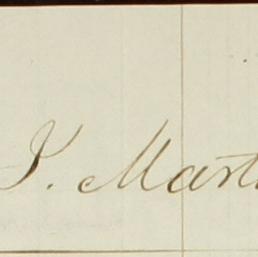 J. Mart